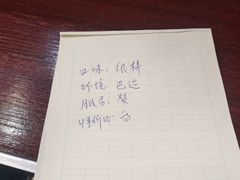 口味：很棒
环境：巴适
服务：赞
性价比：高